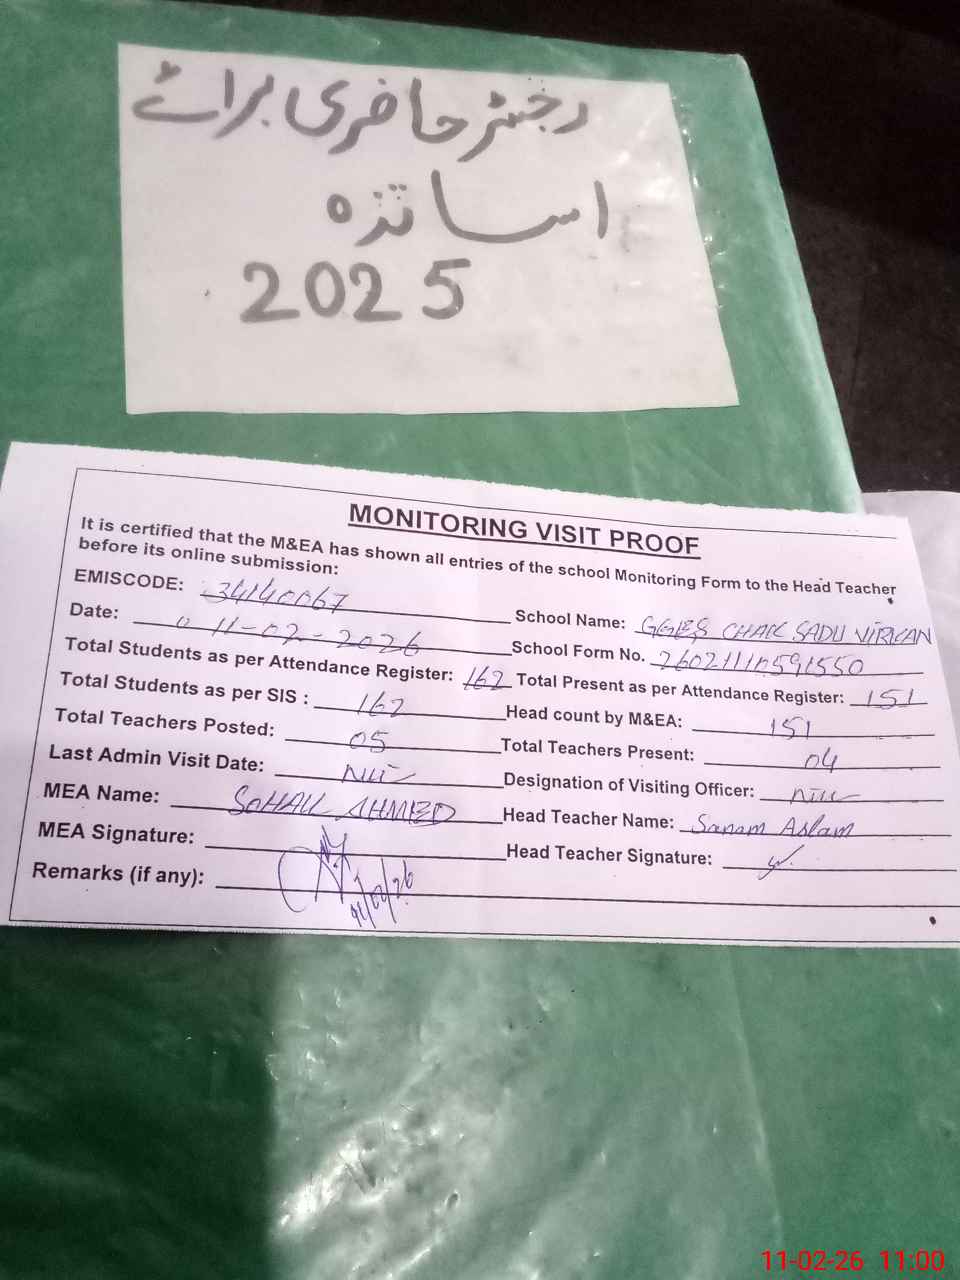 رجسٹر حاضری برائے
اساتذہ
2025
MONITORING VISIT PROOF
It is certified that the M&EA has shown all entries of the school Monitoring Form to the Head Teacher
before its online submission:
EMISCODE: 34140067 School Name: GGES CHAK SADU VIRKAN
Date: 11-02-2026 School Form No. 26021110591550
Total Students as per Attendance Register: 162 Total Present as per Attendance Register: 151
Total Students as per SIS : 162 Head count by M&EA: 151
Total Teachers Posted: 05 Total Teachers Present: 04
Last Admin Visit Date: NIL Designation of Visiting Officer: NIL
MEA Name: SOHAIL AHMED Head Teacher Name: Sanam Aslam
MEA Signature: Head Teacher Signature:
Remarks (if any):
11-02-26 11:00